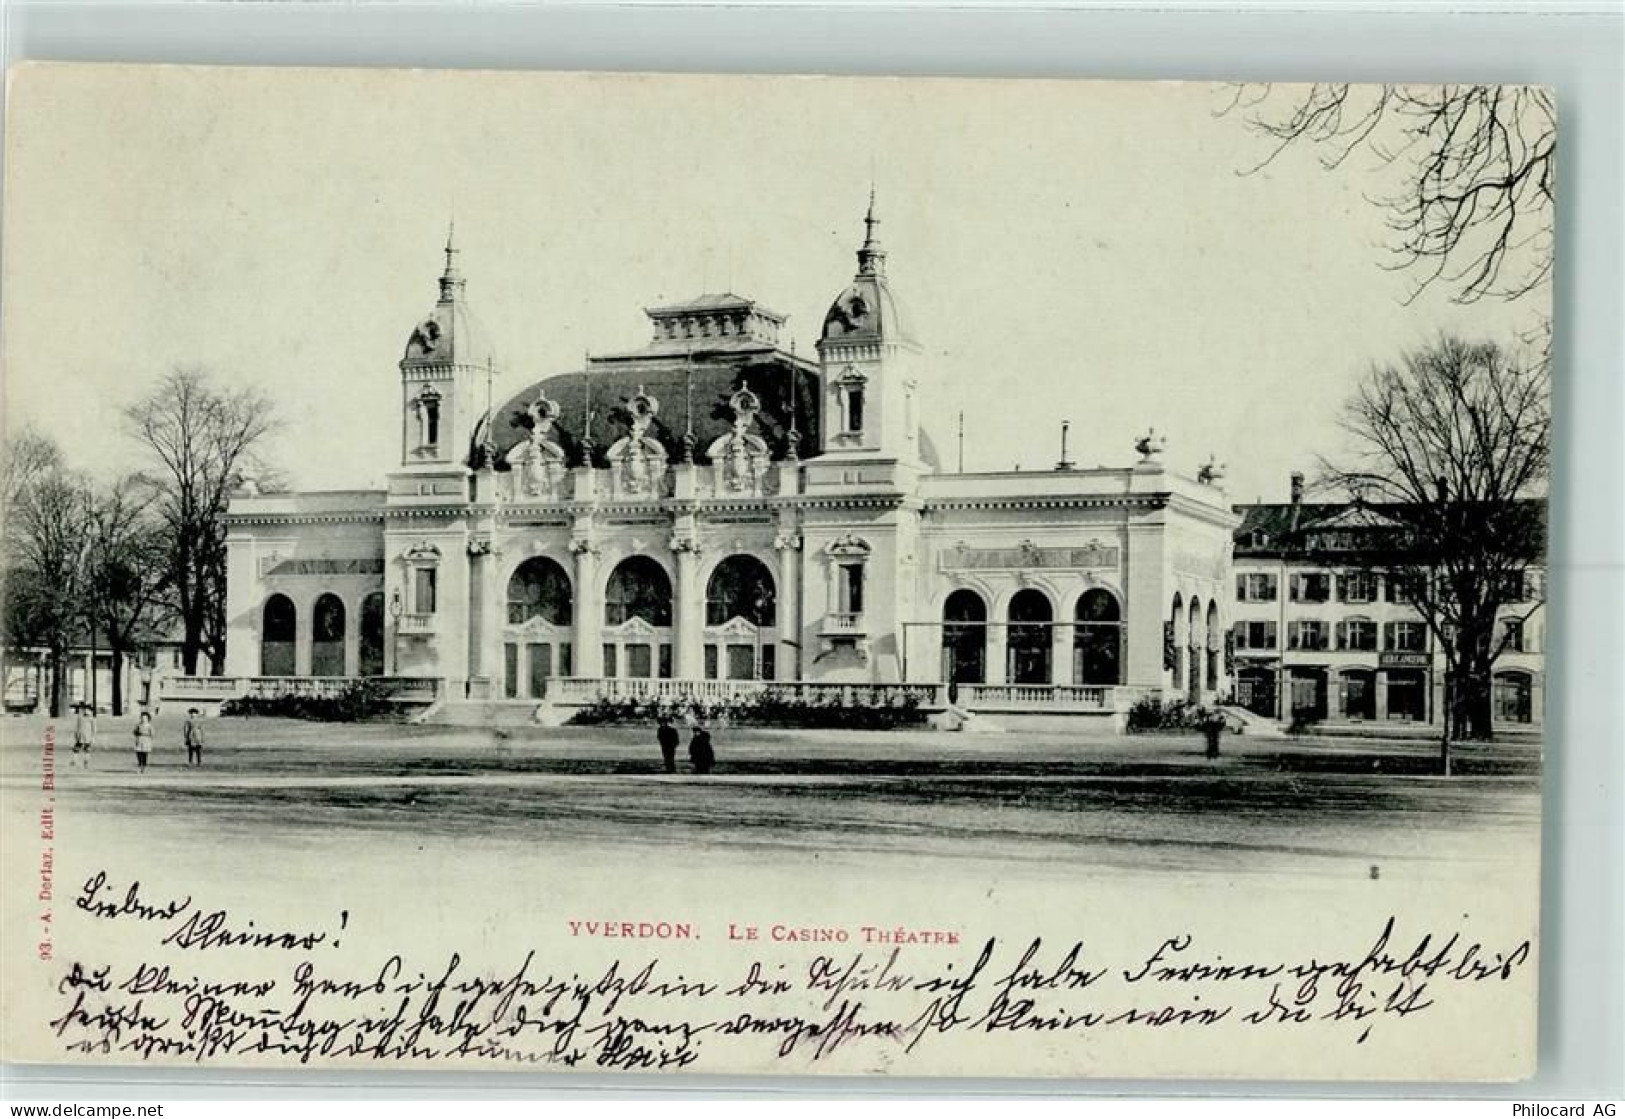 93. - A. Deriaz, Edit., Baulmes
YVERDON. LE CASINO THÉATRE
Lieber
Kleiner!
du kleiner Hans ich gehe jetzt in die Schule ich habe Ferien gehabt bis
heute Montag ich habe dich ganz vergessen so klein wie du bist
es grüßt dich dein
www.delcampe.net
Philocard AG